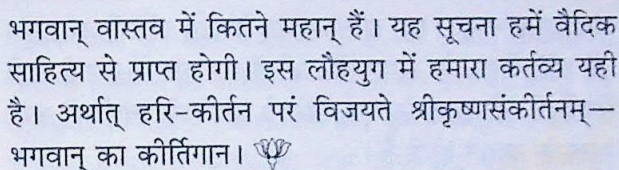 भगवान् वास्तव में कितने महान् हैं। यह सूचना हमें वैदिक
साहित्य से प्राप्त होगी। इस लौहयुग में हमारा कर्तव्य यही
है। अर्थात् हरि-कीर्तन परं विजयते श्रीकृष्णसंकीर्तनम्—
भगवान् का कीर्तिगान।